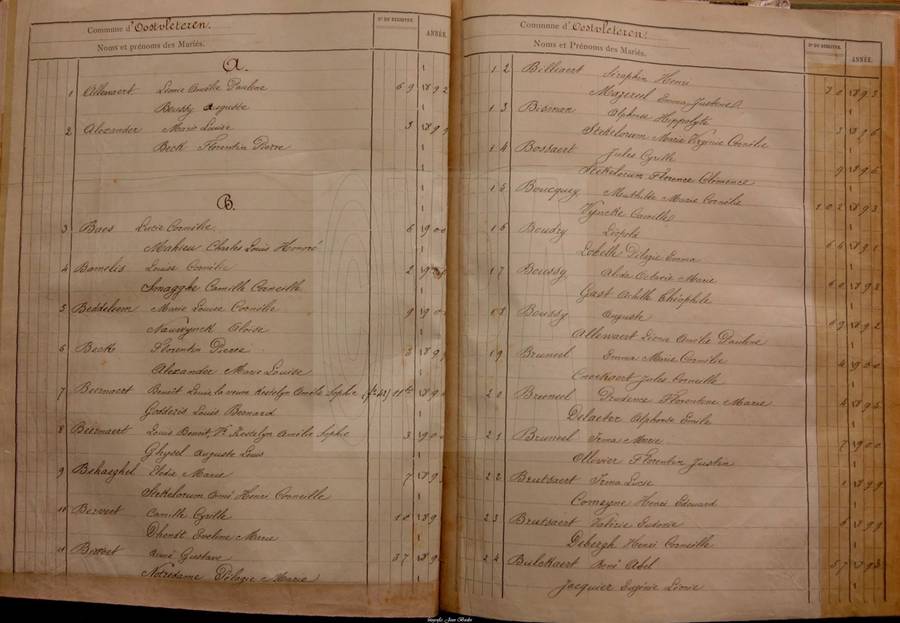 Commune d'Oostvleteren.
Nos DU REGISTRE.
ANNÉE.
Noms et prénoms des Mariés.
A.
1 Allewaert Leonie Amélie Pauline 69 1892
Boussy Auguste
2 Alexander Marie Louise 3 189
Beck Florentin Pierre
B.
3 Baes Lucie Cornélie 6 1900
Mahieu Charles Louis Honoré
4 Bamelis Louise Cornélie 2
Smagghe Camille Corneille
5 Beddeleem Marie Louise Cornélie 9 190
Nauwynck Eloise
6 Beck Florentin Pierre 3 189
Alexander Marie Louise
7 Beernaert Benoît Louis la veuve Kestelyn Amélie Sophie 11
Godderis Louis Bernard
8 Beernaert Louis Benoit, Kestelyn Amélie Sophie 3 190
Ghysel Auguste Louis
9 Behaeghel Elodie Marie 7 189
Stekelorum Aimé Henri Corneille
10 Bervoet Camille Cyrille 10 189
Dhondt Eveline Marie
11 Bervoet René Gustave 37 189
Notredame Pélagie Marie
Commune d'Oostvleteren.
Nos DU REGISTRE.
ANNÉE.
Noms et Prénoms des Mariés.
12 Billiaert Séraphin Henri 70 1893
Mazereel Emma Justine
13 Bisman Alphonse Hippolyte 3 1896
Stekelorum Marie Virginie Cornélie
14 Bossaert Jules Cyrille 9 1896
Stekelorum Florence Clémence
15 Boucquey Mathilde Marie Cornélie 102 1893
Vyncke Camille
16 Boudry Léopold 66 1891
Lobelle Pélagie Emma
17 Boussy Alida Octavie Marie 60 1893
Gast Achille Théophile
18 Boussy Auguste 69 1892
Allewaert Leonie Amélie Pauline
19 Bruneel Emma Marie Cornélie 4 1900
Cnockaert Jules Corneille
20 Bruneel Prudence Florentine Marie 4 1896
Delaeter Alphonse Emile
21 Bruneel Irma Marie 7 1900
Ollevier Florentin Justin
22 Brutsaert Irma Lucie 1 1899
Comeyne Henri Edouard
23 Brutsaert Valérie Eudoxie 6 1899
Debergh Henri Corneille
24 Bulckaert René Abel 57 1893
Jacquier Eugénie Léonie